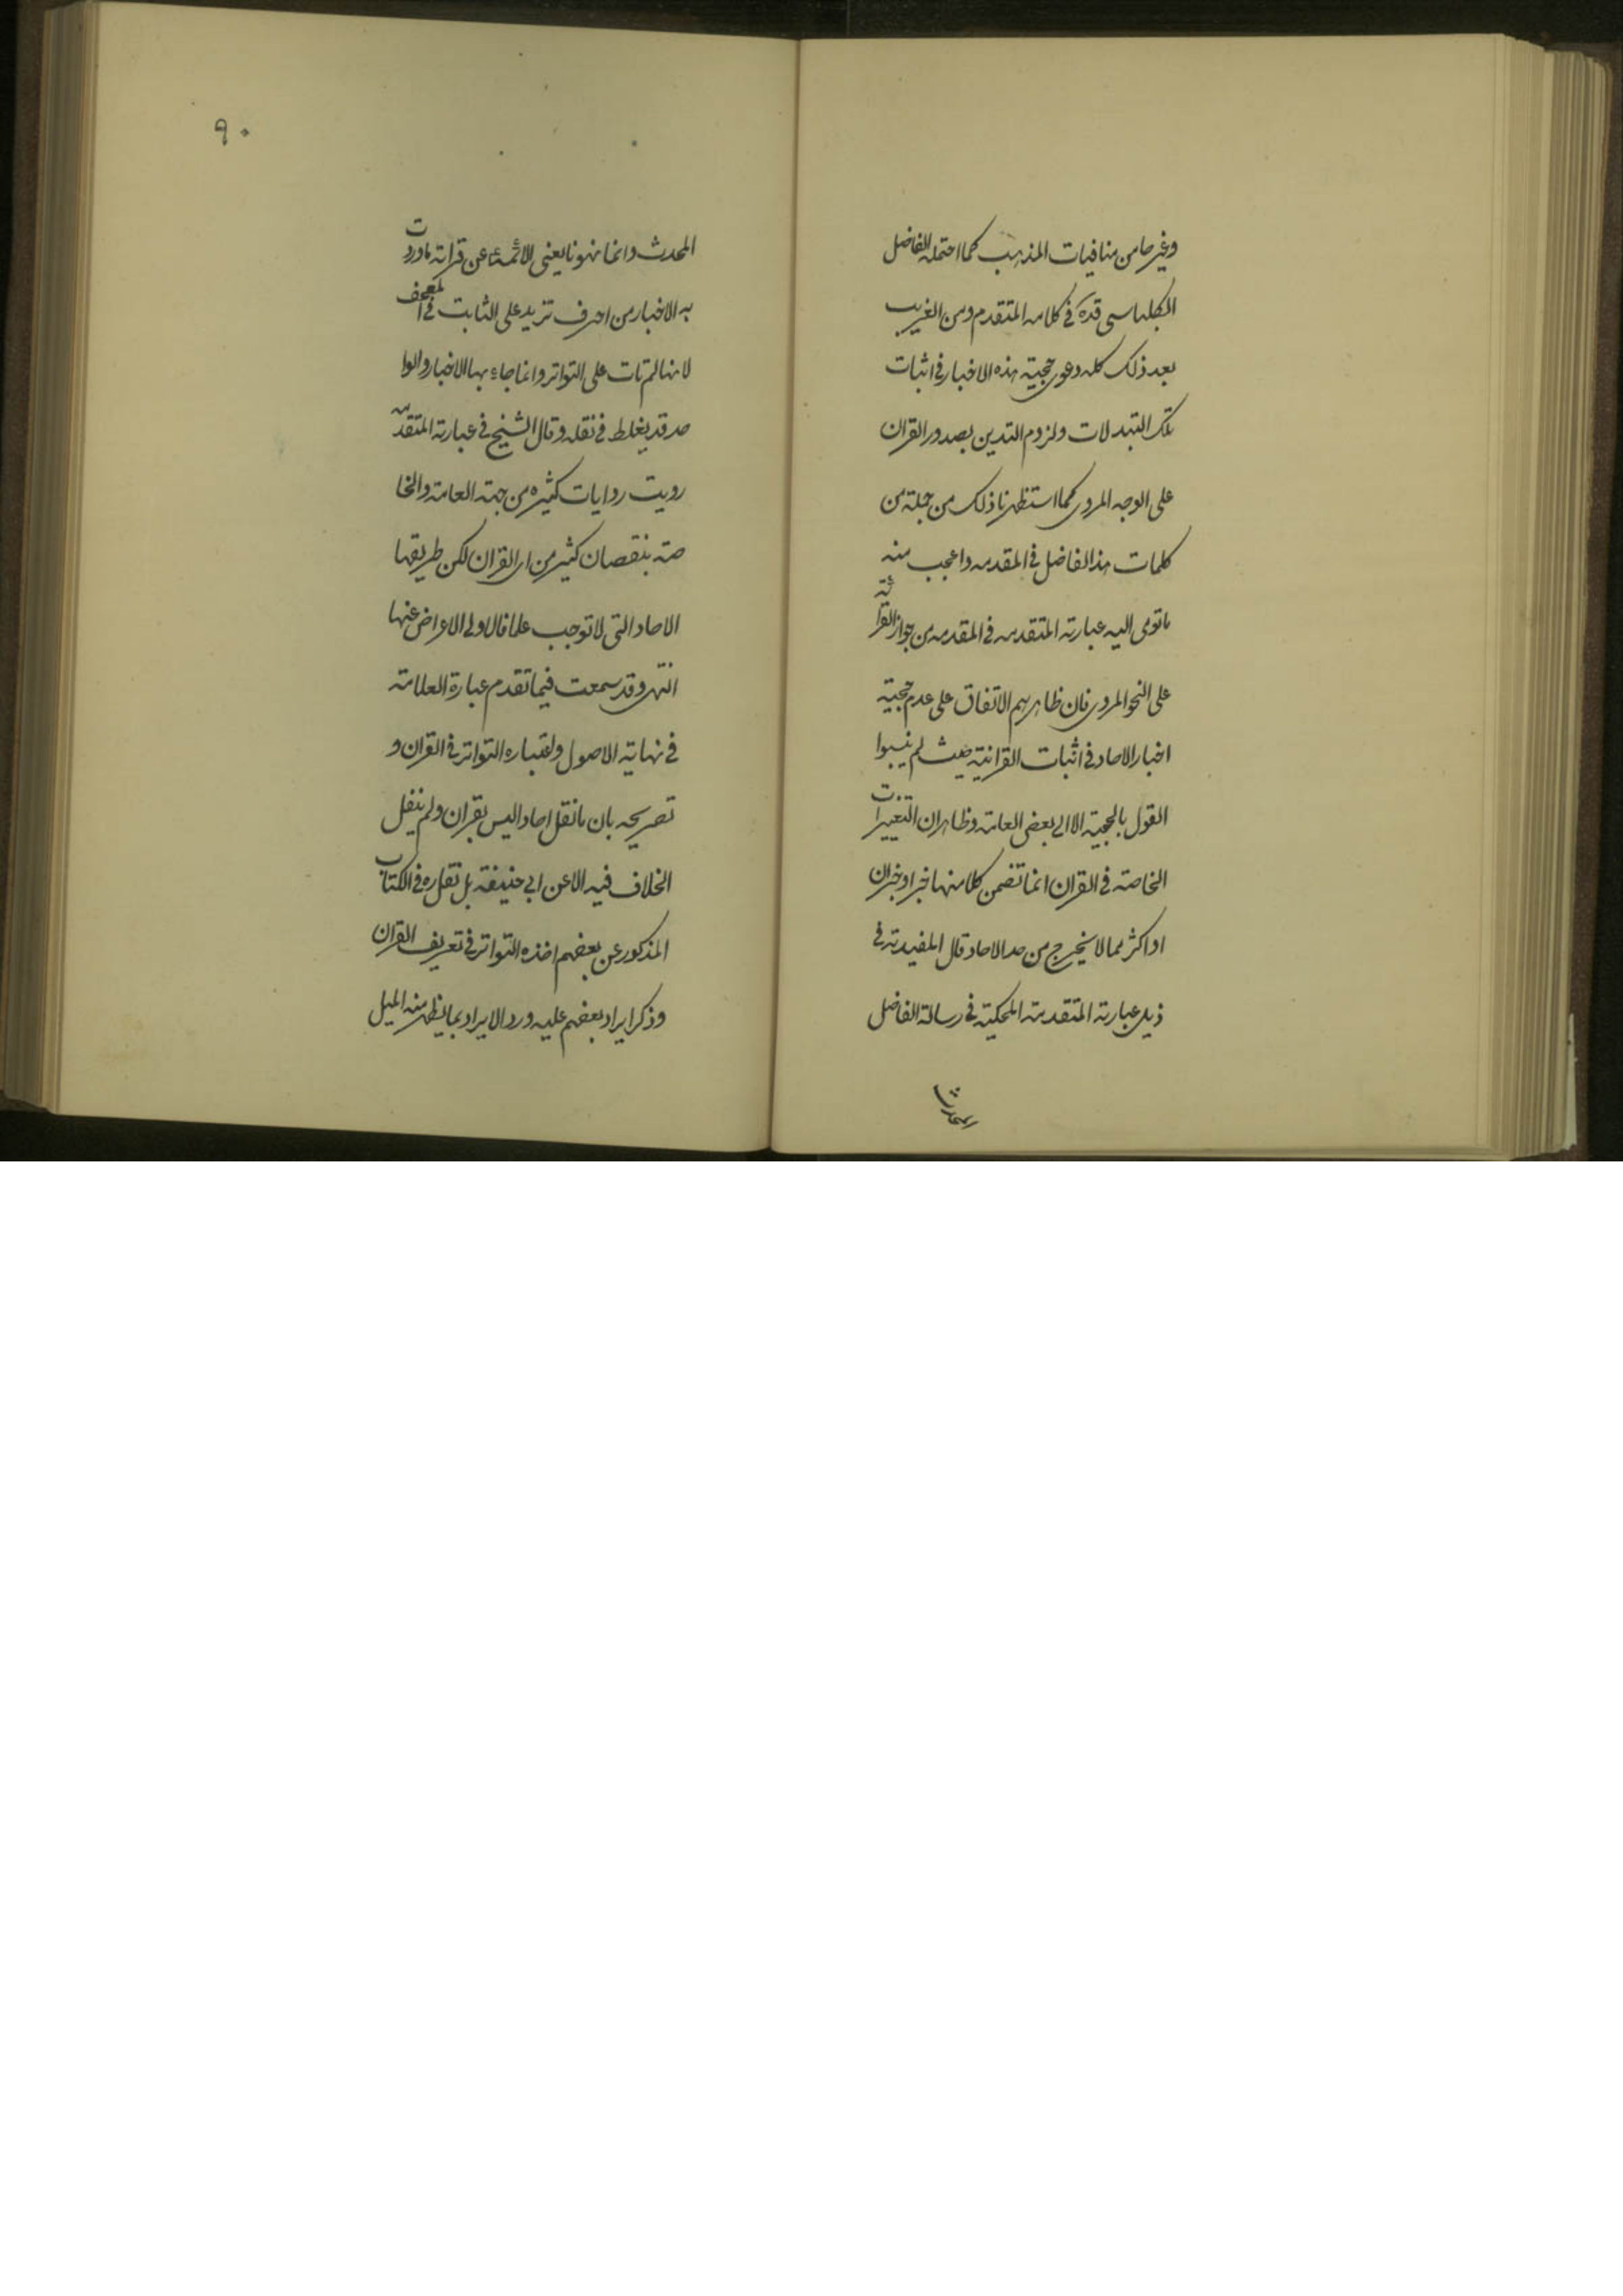 وغيرها من منافيات المذهب كما احتمله الفاضل
الكلباسي قده في كلامه المتقدم ومن الغريب
بعد ذلك كله دعوى حجية هذه الاخبار في اثبات
تلك التبدلات ولزوم التدين بصدور القران
على الوجه المروى كما استظهرنا ذلك من جملة من
كلمات هذا الفاضل في المقدمه واعجب منه
ما تومى اليه عبارته المتقدمه في المقدمه من جواز القرائة
على النحو المروى فان ظاهرهم الاتفاق على عدم حجية
اخبار الاحاد في اثبات القرانية حيث لم ينسبوا
القول بالحجية الا الى بعض العامة وظاهر ان التغييرات
الخاصة في القران انما تضمن كلا منها خبر او خبران
او اكثر مما لا يخرج من حد الاحاد قال المفيد ره في
ذيل عبارته المتقدمة المحكية في رسالة الفاضل
المحدث
٩٠
المحدث وانما نهونا يعنى الائمة ع عن قرائة ما وردت
به الاخبار من احرف تزيد على الثابت في المصحف
لانها لم تات على التواتر وانما جاء بها الاخبار والوا
حد قد يغلط في نقله وقال الشيخ في عبارته المتقدمه
رويت روايات كثيره من جهة العامة والخا
صة بنقصان كثير من اى القران لكن طريقها
الاحاد التى لا توجب علما فالاولى الاعراض عنها
انتهى وقد سمعت فيما تقدم عبارة العلامة
في نهاية الاصول واعتباره التواتر في القران و
تصريحه بان ما نقل احادا ليس بقران ولم ينقل
الخلاف فيه الا عن ابى حنيفة بل نقل ره في الكتاب
المذكور عن بعضهم اخذه التواتر في تعريف القران
وذكر ايراد بعضهم عليه ورد الايراد بما يظهر منه الميل